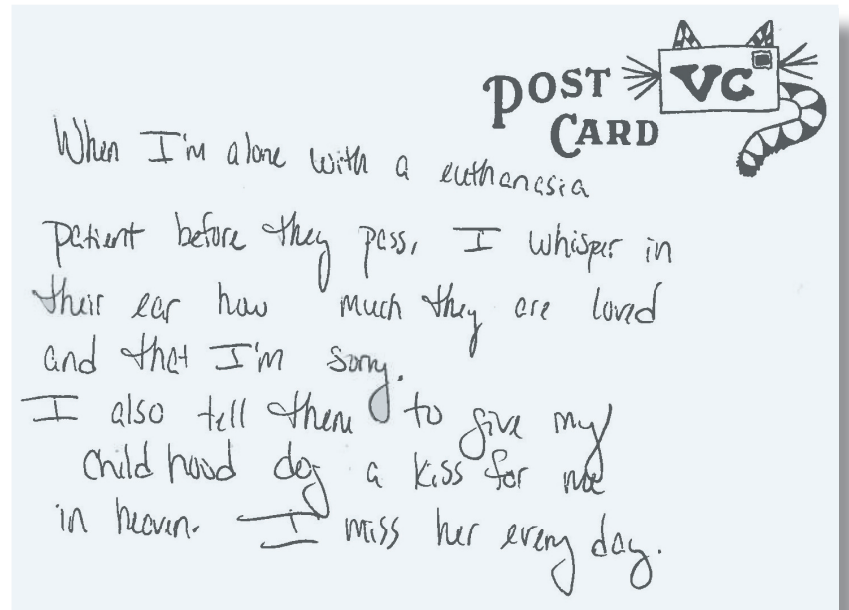 POST VC
CARD
When I'm alone with a euthanasia
patient before they pass, I whisper in
their ear how much they are loved
and that I'm sorry.
I also tell them to give my
childhood dog a kiss for me
in heaven. I miss her every day.